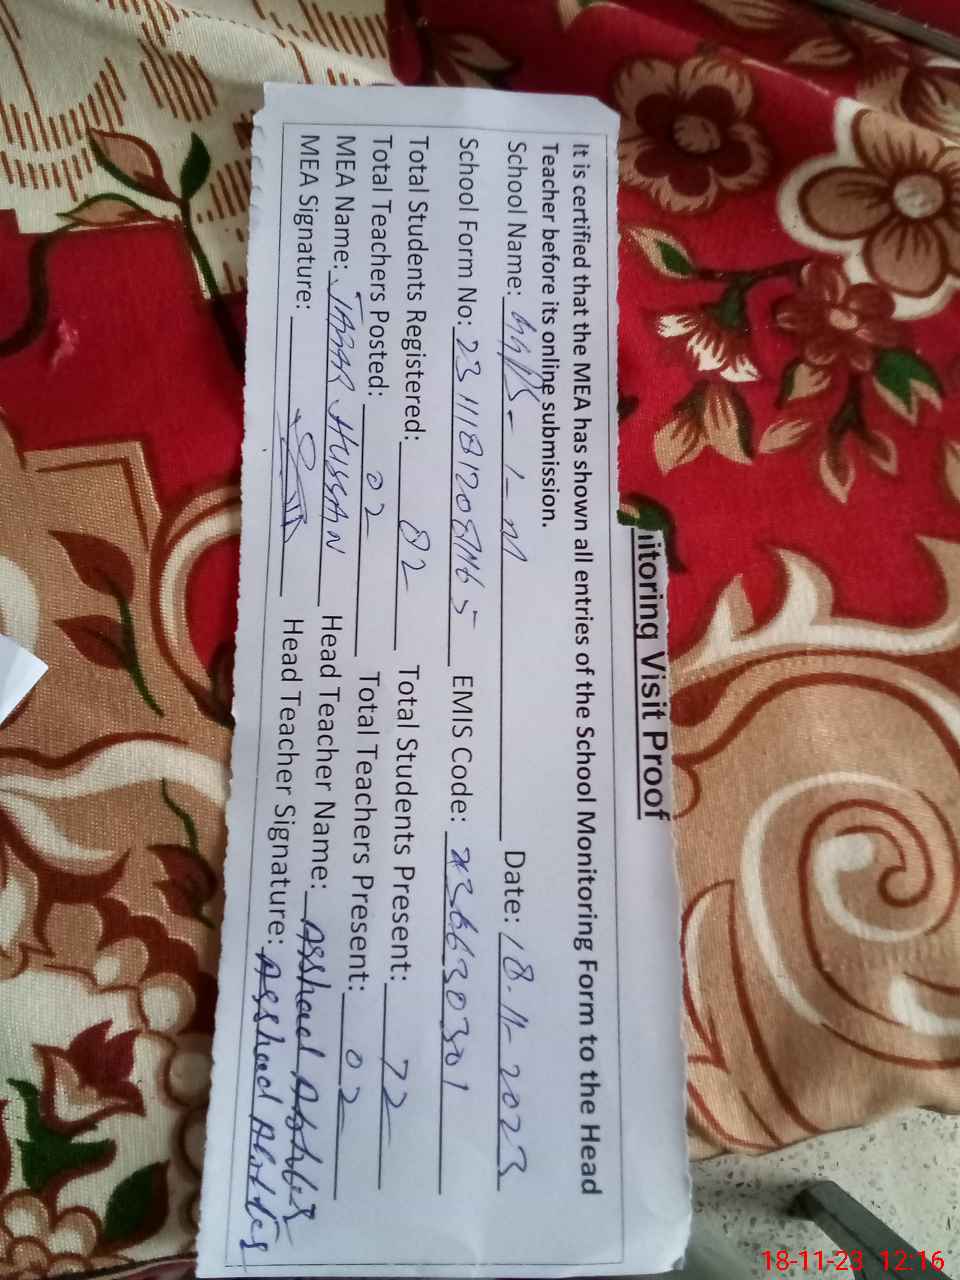 nitoring Visit Proof
It is certified that the MEA has shown all entries of the School Monitoring Form to the Head
Teacher before its online submission.
School Name: GGPS - 1 - M Date: 18-11-2023
School Form No: 23 1118120 5 EMIS Code: 36630301
Total Students Registered: 82 Total Students Present: 72
Total Teachers Posted: 02 Total Teachers Present: 02
MEA Name: JABAR HUSSAN Head Teacher Name:
MEA Signature: Head Teacher Signature:
18-11-23 12:16